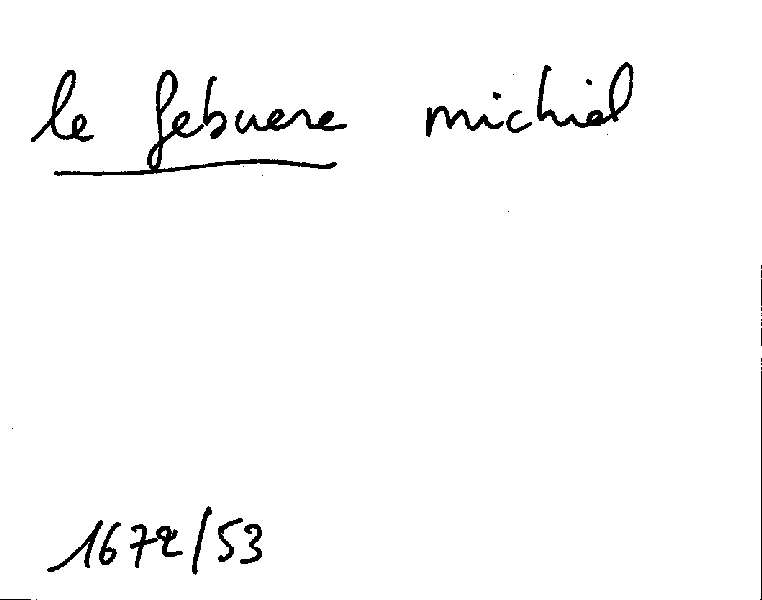 le febuere michiel
1672/53